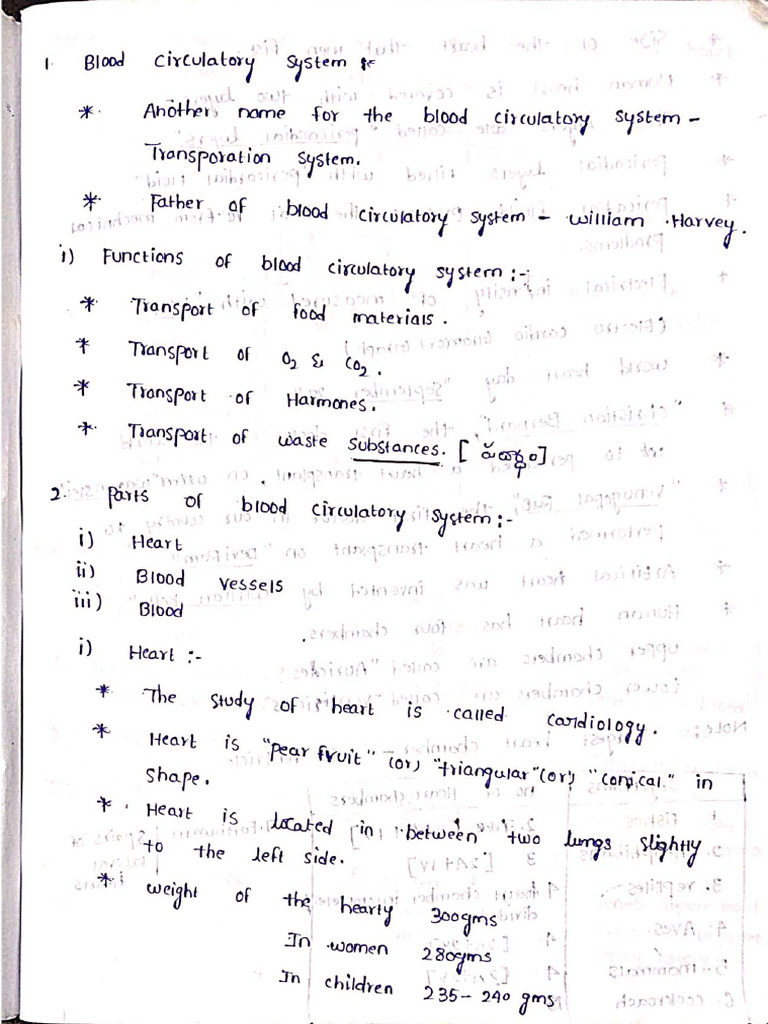 1. Blood circulatory system :-
* Another name for the blood circulatory system -
Transporation system.
* Father of blood circulatory system - william Harvey.
i) Functions of blood circulatory system :-
* Transport of food materials.
* Transport of O2 & CO2.
* Transport of Harmones.
* Transport of waste substances. [
2. parts of blood circulatory system :-
i) Heart
ii) Blood vessels
iii) Blood
i) Heart :-
* The study of heart is called cardiology.
* Heart is "pear fruit" (or) "triangular" (or) "conical" in
shape.
* Heart is located in between two lungs slightly
to the left side.
* weight of the hearty 300gms
In women 280gms
In children 235 - 240 gms